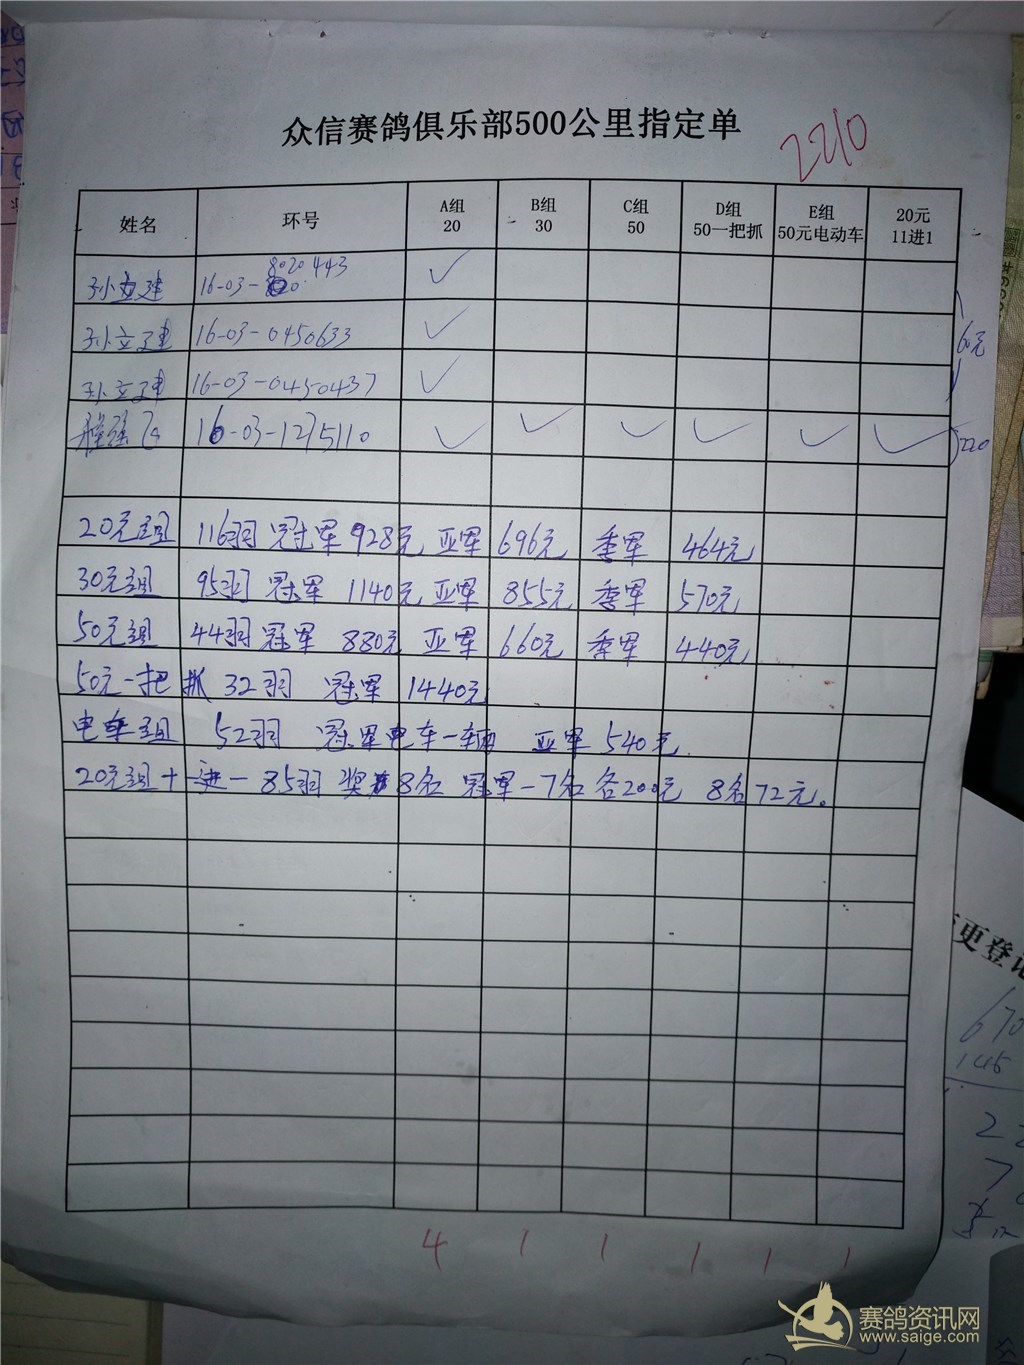 众信赛鸽俱乐部500公里指定单
2210
姓名 环号 A组 20 B组 30 C组 50 D组 50一把抓 E组 50元电动车 20元 11进1
孙立建 16-03-8020443 ✓
孙立建 16-03-0450633 ✓
孙立建 16-03-0450437 ✓
60元
强飞 16-03-1275110 ✓ ✓ ✓ ✓ ✓ ✓ 220
20元组 116羽 冠军 928元 亚军 696元 季军 464元
30元组 95羽 冠军 1140元 亚军 855元 季军 570元
50元组 44羽 冠军 880元 亚军 660元 季军 440元
50元一把抓 32羽 冠军 1440元
电车组 52羽 冠军电车一辆 亚军 540元.
20元组十进一 85羽 奖8名 冠军-7名 各200元 8名72元。
4 1 1 1 1 1
更登记
670
145
赛鸽资讯网
www.saige.com